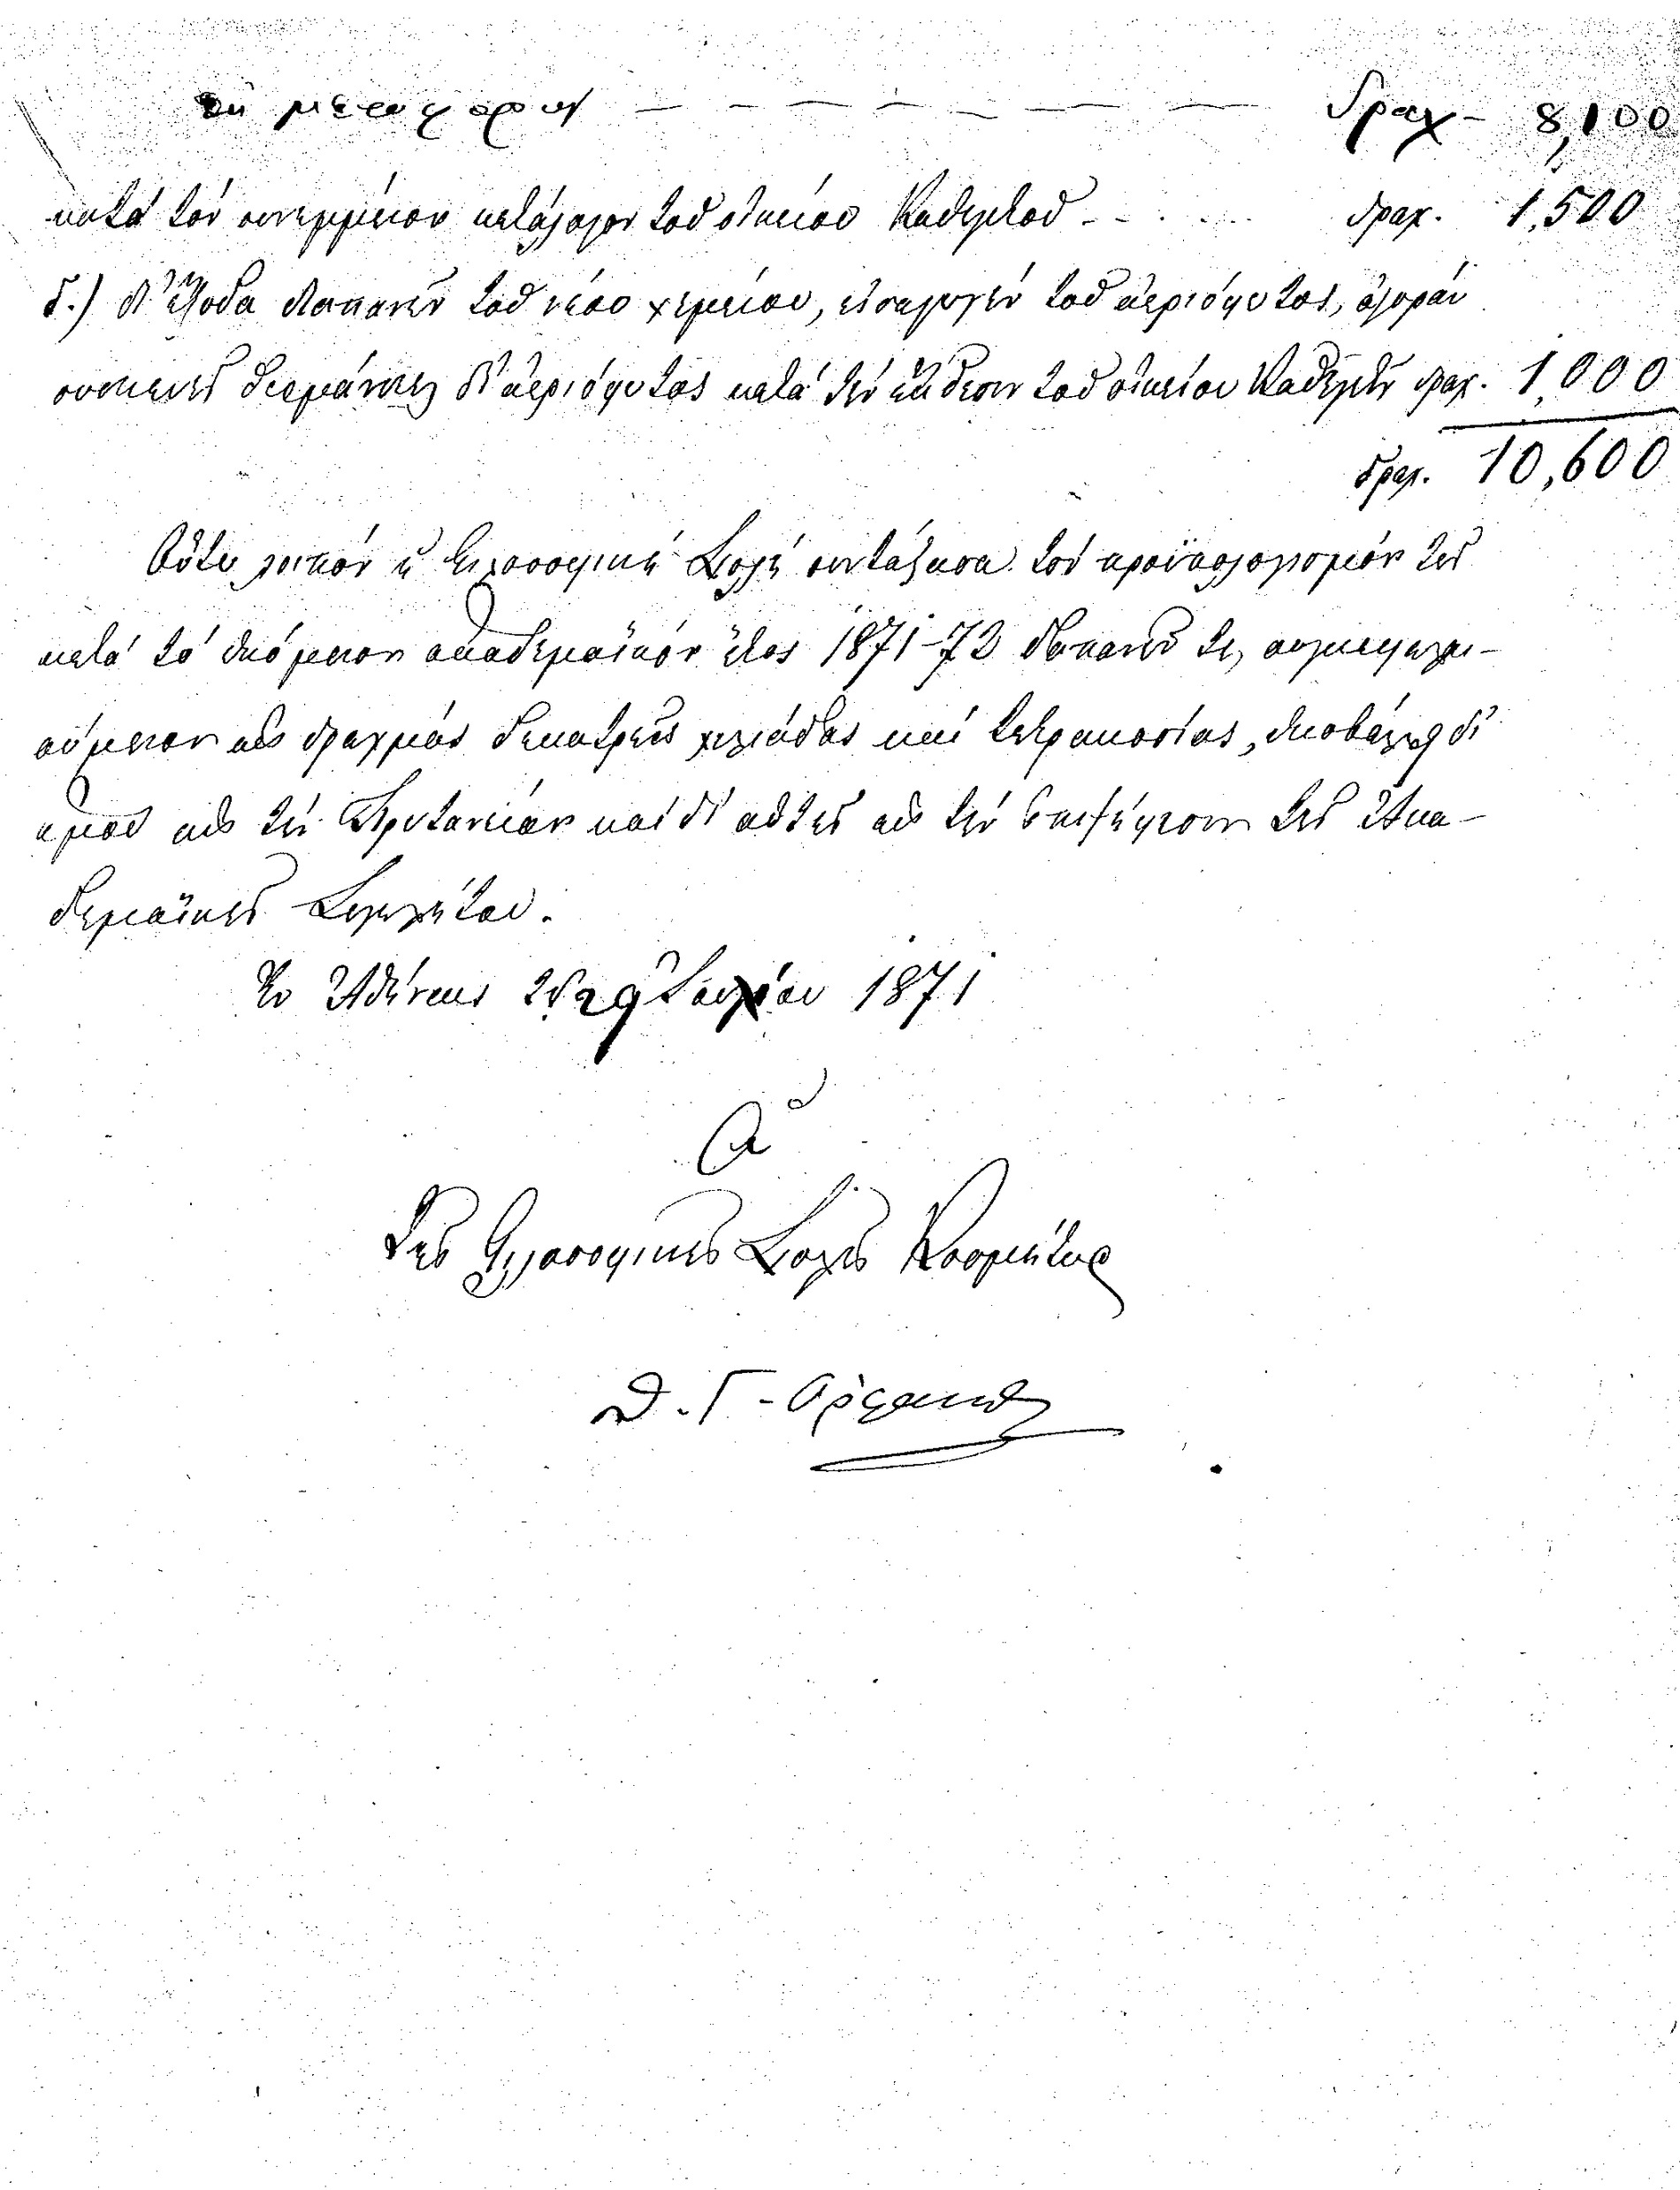 ἐκ μεταφορᾶς — — — — — Δραχ — 8,100
κατὰ τὸν συνημμένον κατάλογον τοῦ οἰκείου Καθηγητοῦ - - . ... δραχ. 1,500
δ.) δι' ἔξοδα δαπανῶν τοῦ νέου χημείου, εἰσαγωγὴν τοῦ ἀεριόφωτος, ἀγορὰν
συσκευῆς θερμάνσεως δι' ἀεριόφωτος κατὰ τὴν ἔκθεσιν τοῦ οἰκείου Καθηγητοῦ δραχ. 1,000
δραχ. 10,600
Οὕτω λοιπὸν ἡ Φιλοσοφικὴ Σχολὴ συντάξασα τὸν προϋπολογισμὸν τῆς
κατὰ τὸ ἑπόμενον ἀκαδημαϊκὸν ἔτος 1871-72 δαπάνης της, συγκεφαλαι-
ούμενον εἰς δραχμὰς δεκατρεῖς χιλιάδας καὶ τετρακοσίας, ὑποβάλλει δι'
ἐμοῦ εἰς τὴν Πρυτανείαν καὶ δι' αὐτῆς εἰς τὴν ἐπιψήφισιν τῆς Ἀκα-
δημαϊκῆς Συγκλήτου.
Ἐν Ἀθήναις τῇ 29 Ἰουλίου 1871
Ὁ
τῆς Φιλοσοφικῆς Σχολῆς Κοσμήτωρ
Θ. Γ. Ὀρφανίδης